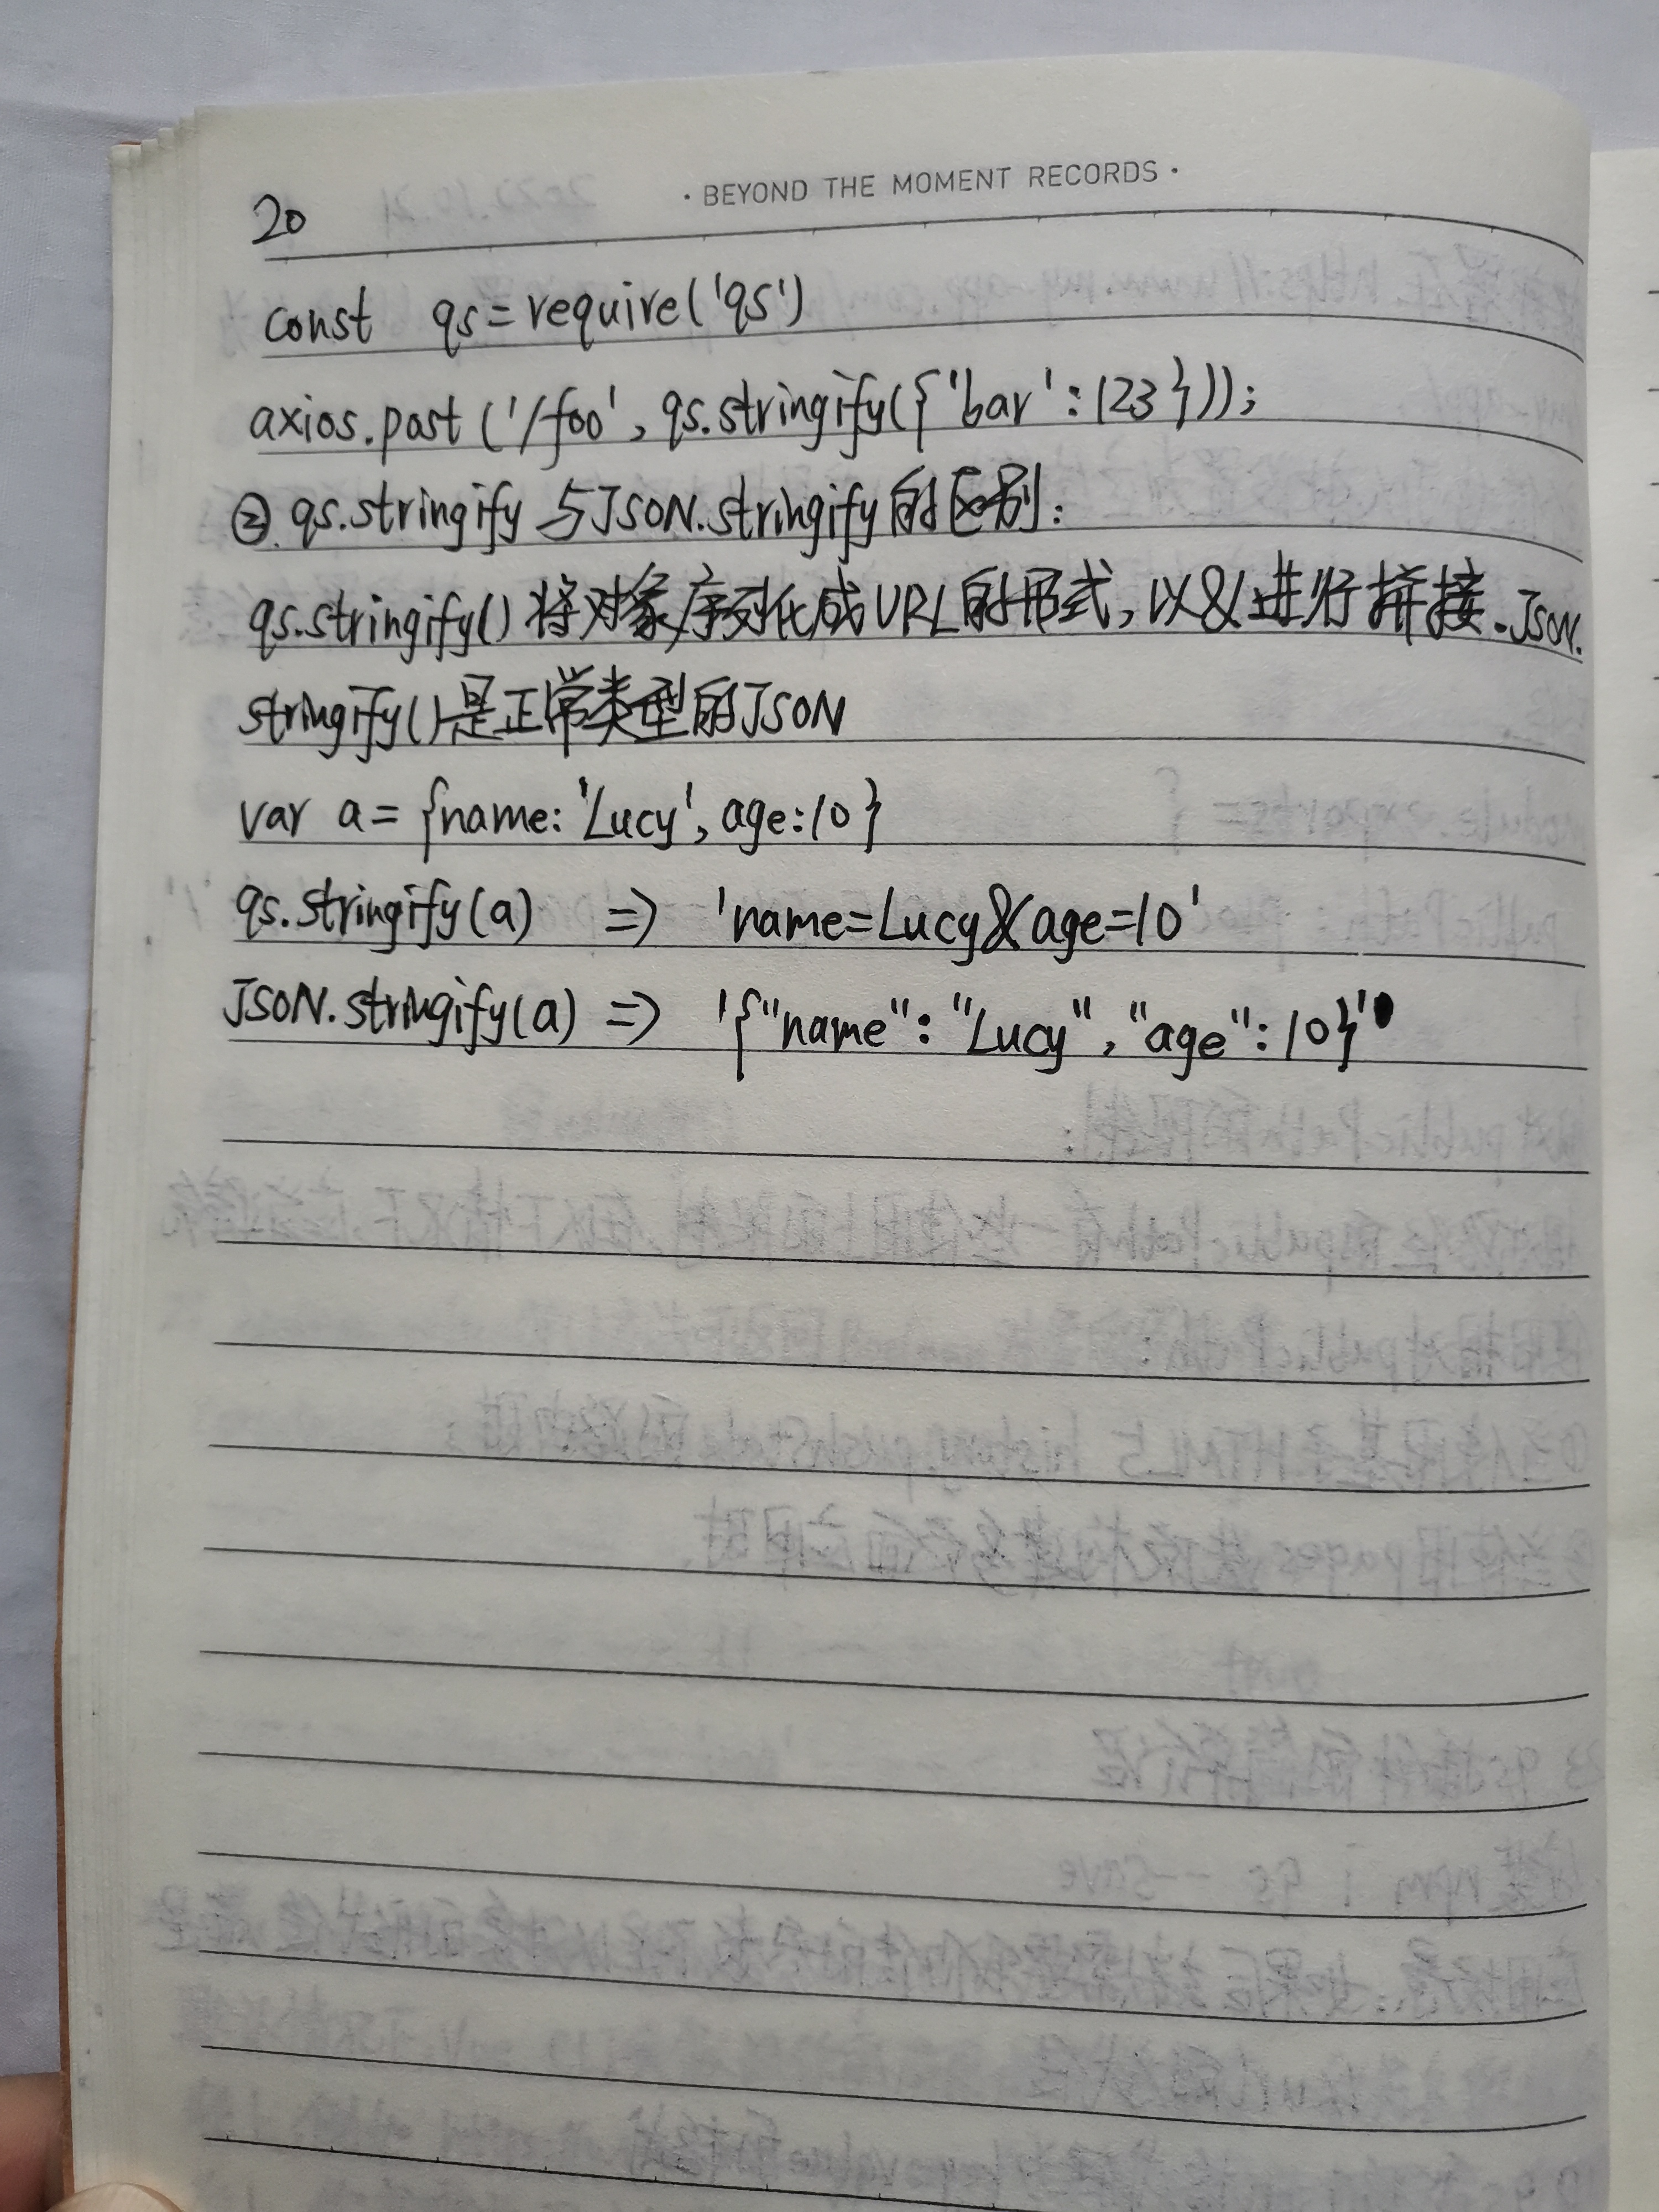 · BEYOND THE MOMENT RECORDS ·
20
const qs=require('qs')
axios.post('/foo', qs.stringify({'bar':123}));
② qs.stringify与JSON.stringify的区别:
qs.stringify()将对象序列化成URL的形式,以&进行拼接.JSON.
stringify()是正常类型的JSON
var a={name:'Lucy', age:10}
qs.stringify(a) => 'name=Lucy&age=10'
JSON.stringify(a) => '{"name":"Lucy","age":10}'